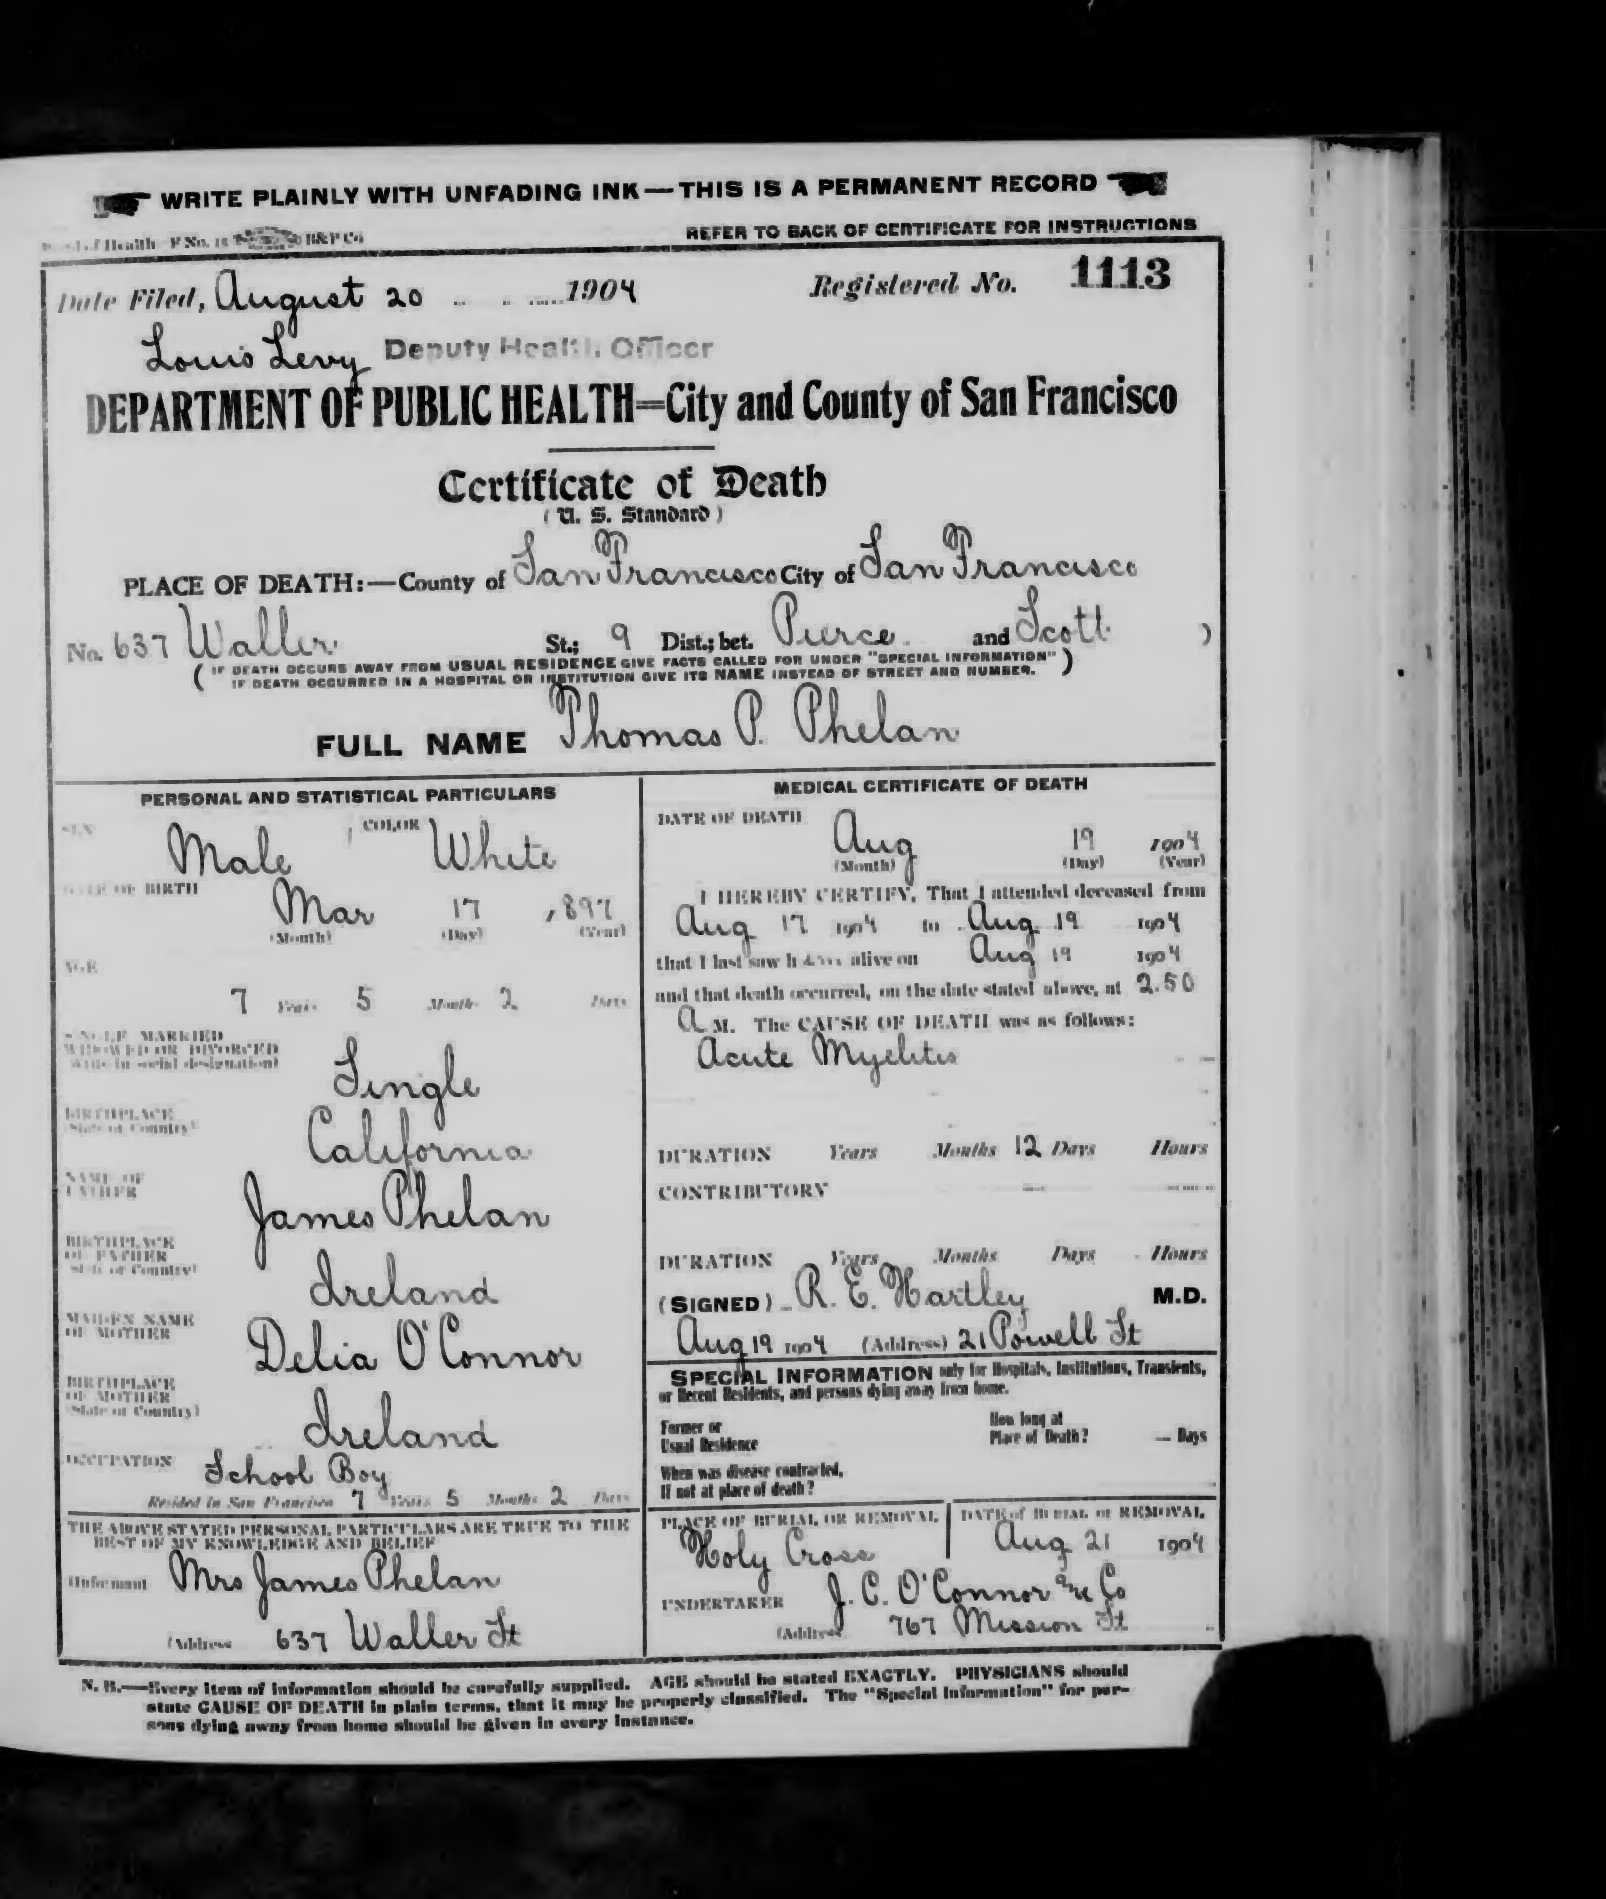 WRITE PLAINLY WITH UNFADING INK — THIS IS A PERMANENT RECORD
of Health F No. H&P Co
REFER TO BACK OF CERTIFICATE FOR INSTRUCTIONS
Date Filed, August 20 1904
Registered No. 1113
Louis Levy Deputy Health Officer
DEPARTMENT OF PUBLIC HEALTH=City and County of San Francisco
Certificate of Death
( U. S. Standard )
PLACE OF DEATH:—County of San Francisco City of San Francisco
No. 637 Waller St.; 9 Dist.; bet. Pierce and Scott )
( IF DEATH OCCURS AWAY FROM USUAL RESIDENCE GIVE FACTS CALLED FOR UNDER "SPECIAL INFORMATION" )
IF DEATH OCCURRED IN A HOSPITAL OR INSTITUTION GIVE ITS NAME INSTEAD OF STREET AND NUMBER.
FULL NAME Thomas P. Phelan
PERSONAL AND STATISTICAL PARTICULARS
SEX Male COLOR White
DATE OF BIRTH
Mar 17 , 897
(Month) (Day) (Year)
AGE
7 Years 5 Months 2 Days
SINGLE MARRIED
WIDOWED OR DIVORCED
(Write in social designation)
Single
BIRTHPLACE
(State or Country)
California
NAME OF
FATHER
James Phelan
BIRTHPLACE
OF FATHER
(State or Country)
Ireland
MAIDEN NAME
OF MOTHER
Delia O'Connor
BIRTHPLACE
OF MOTHER
(State or Country)
Ireland
OCCUPATION School Boy
Resided in San Francisco 7 Years 5 Months 2 Days
THE ABOVE STATED PERSONAL PARTICULARS ARE TRUE TO THE
BEST OF MY KNOWLEDGE AND BELIEF
(Informant Mrs James Phelan
(Address 637 Waller St
MEDICAL CERTIFICATE OF DEATH
DATE OF DEATH
Aug 19 1904
(Month) (Day) (Year)
I HEREBY CERTIFY, That I attended deceased from
Aug 17 1904 to Aug 19 1904
that I last saw him alive on Aug 19 1904
and that death occurred, on the date stated above, at 2.50
A M. The CAUSE OF DEATH was as follows:
Acute Myelitis
DURATION Years Months 12 Days Hours
CONTRIBUTORY
DURATION Years Months Days Hours
(SIGNED) R. E. Hartley M.D.
Aug 19 1904 (Address) 21 Powell St
SPECIAL INFORMATION only for Hospitals, Institutions, Transients,
or Recent Residents, and persons dying away from home.
Former or
Usual Residence
How long at
Place of Death? — Days
When was disease contracted,
If not at place of death?
PLACE OF BURIAL OR REMOVAL
Holy Cross
DATE of BURIAL or REMOVAL
Aug 21 1904
UNDERTAKER J. C. O'Connor & Co
(Address 767 Mission St
N. B.—Every item of information should be carefully supplied. AGE should be stated EXACTLY. PHYSICIANS should
state CAUSE OF DEATH in plain terms, that it may be properly classified. The "Special Information" for per-
sons dying away from home should be given in every instance.